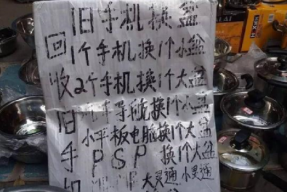 旧手机换盆
回1个手机换1个小盆
收2个手机换1个大盆
旧1个导航换1个大盆
小平板电脑换1个大盆
手PSP换1个大盆
机 大灵通 小灵通